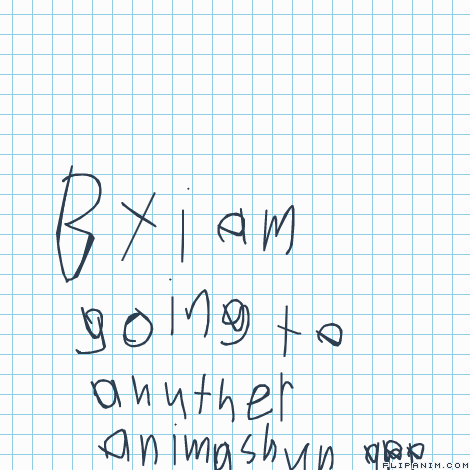 By i am
going to
anuther
animashun
FLIPANIM.COM